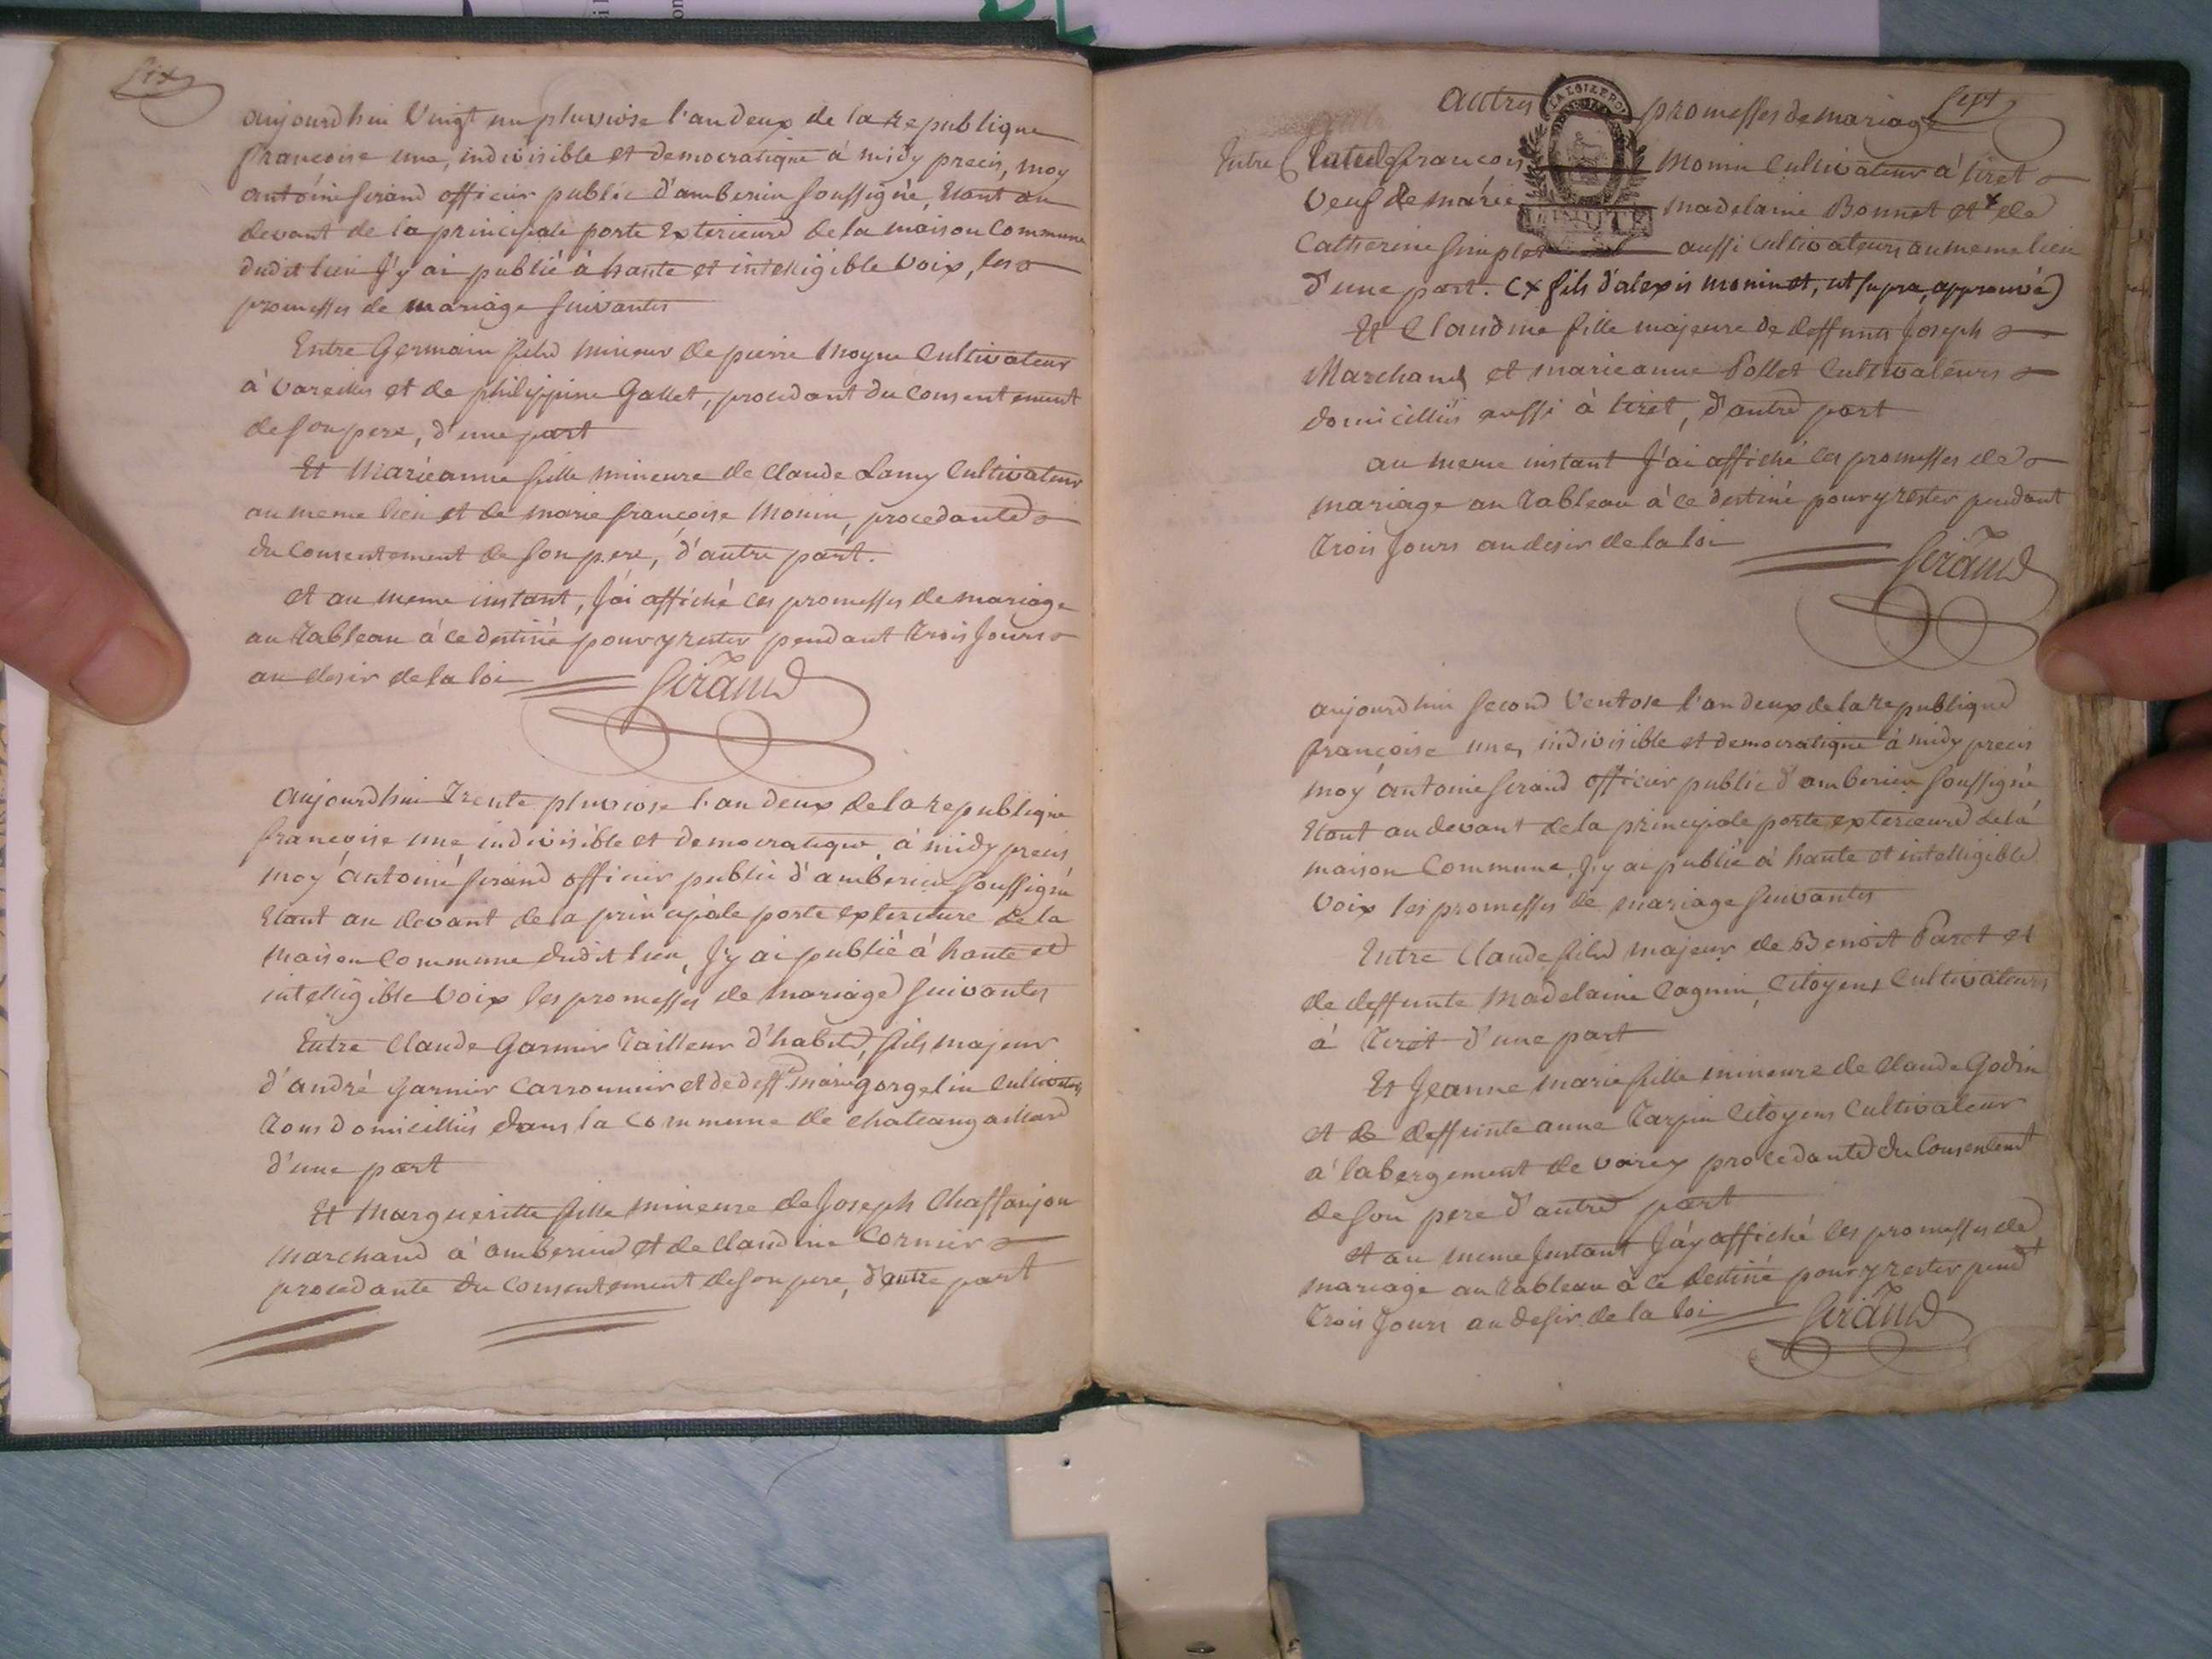 six
aujourdhui Vingt un pluviose l'an deux de la republique
francoise une, indivisible et democratique à midy precis, moy
antoine Girand officier public d'amberieu soussigné, Etant au
devant de la principale porte Exterieure de la maison Commune
dudit lieu J'y ai publié à haute et intelligible voix, les
promesses de mariage suivantes
Entre Germain fils mineur de pierre Moyne Cultivateur
à Vareilles et de philippine Gallet, procedant du Consentement
de son pere, d'une part
Et Marieanne fille mineure de Claude Lamy Cultivateur
au meme lieu et de marie françoise Monin, procedante
du Consentement de son pere, d'autre part.
et au meme instant, J'ai affiché les promesses de mariage
au Tableau à ce destiné pour y rester pendant Trois Jours
au desir de la loi Girand
aujourdhui Trente pluviose l'an deux de la republique
francoise une indivisible et democratique, à midy precis
moy antoine Girand officier public d'amberieu soussigné
Etant au devant de la principale porte exterieure de la
maison Commune dudit lieu, J'y ai publié à haute et
intelligible Voix les promesses de mariage suivantes
Entre Claude Garnier Tailleur d'habits, fils majeur
d'andré Garnier Carronnier et de deff.te marie gorgelin Cultivateurs
Tous domicilliés dans la Commune de Chateaugaillard
d'une part
Et Margueritte fille mineure de Joseph Chaffanjon
marchand à amberieu et de Claudine Cornier
procedante du Consentement de son pere, d'autre part
sept
autres promesses de mariage
Entre francois Monin Cultivateur à tiret
Veuf de marie madelaine Bonnet et x de
Catherine Simplet aussi Cultivateurs au meme lieu
d'une part. (x fils d'alexis monin et, ut supra, approuvé)
Et Claudine fille majeure de deffunts Joseph
Marchand et marieanne Pollet Cultivateurs
domicilliés aussi à tiret, d'autre part
au meme instant J'ai affiché les promesses de
mariage au Tableau à ce destiné pour y rester pendant
Trois Jours au desir de la loi Girand
aujourdhui second Ventose l'an deux de la republique
françoise une, indivisible et democratique à midy precis
moy antoine Girand officier public d'amberieu soussigné
Etant au devant de la principale porte exterieure de la
maison Commune, J'y ai publié à haute et intelligible
Voix les promesses de mariage suivantes
Entre Claude fils majeur de Benoit Paret et
de deffunte Madelaine Cagnin, Citoyens Cultivateurs
à Tiret d'une part
Et Jeanne marie fille mineure de Claude Godin
et de deffunte anne Tarpin Citoyens Cultivateur
à labergement de varey procedante du Consentemt
de son pere d'autre part
et au meme Instant J'ay affiché les promesses de
mariage au Tableau à ce destiné pour y rester pendt
Trois Jours au desir de la loi Girand